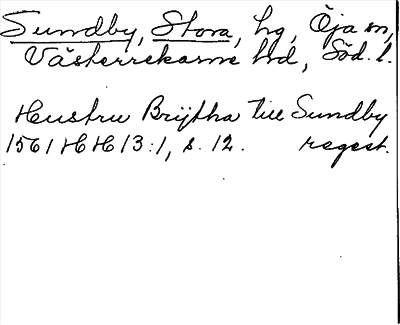 Sundby, Stora, hg, Öja sn,
Västerrekarne hd, Söd. l.
Hustru Brÿtha till Sundby
1561 HH 13:1, s. 12. regest.